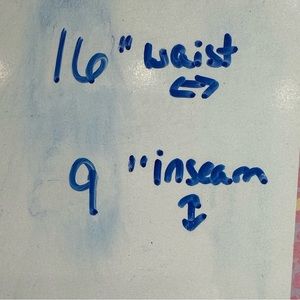 16" waist
↔
9 "inseam
↕